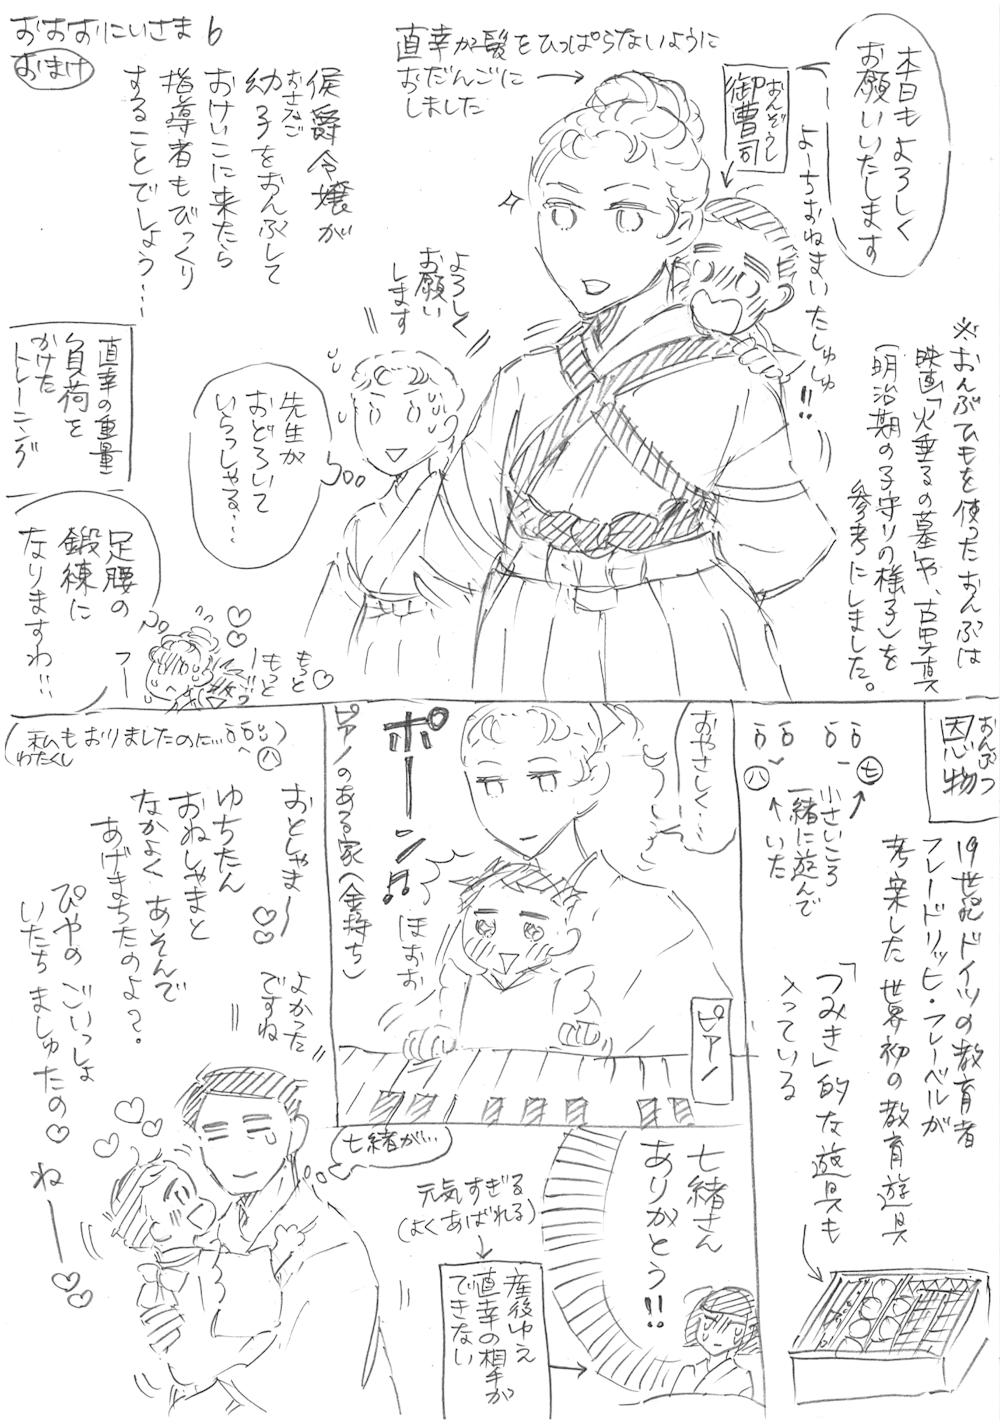 おおおにいさま6
おまけ
本日もよろしく
お願いいたします
直幸が髪をひっぱらないように
おだんごに
しました
おんぞうし
御曹司
よーちおねまいたしゅしゅ!!
侯爵令嬢が
おさなご
幼子をおんぶして
おけいこに来たら
指導者もびっくり
することでしょう…
よろしく
お願い
します
先生が
おどろいて
いらっしゃる…
※おんぶひもを使ったおんぶは
映画「火垂るの墓」や、古写真
「明治期の子守りの様子」を
参考にしました。
直幸の重量
負荷を
かけた
トレーニング
足腰の
鍛練に
なりますわ!!
フー
もっと
もっと
おんぶつ
恩物
19世紀ドイツの教育者
フレードリッヒ・フレーベルが
考案した世界初の教育遊具
「つみき」的な遊具も
入っている
七
八
小さいころ
一緒に遊んで
いた
おやさしく…
ポーン♬
ほぉお
ピアノのある家(金持ち)
ピアノ
(私もおりましたのに…
わたくし
八)
おとしゃま〜
ゆちたん
おねしゃまと
なかよくあそんで
あげまちたのよ?
ぴやのごいっしょ
いたちましゅたの♡
ねー♡♡
よかった
ですね
七緒が…
七緒さん
ありがとう!!
元気すぎる
(よくあばれる)
産後ゆえ
直幸の相手が
できない